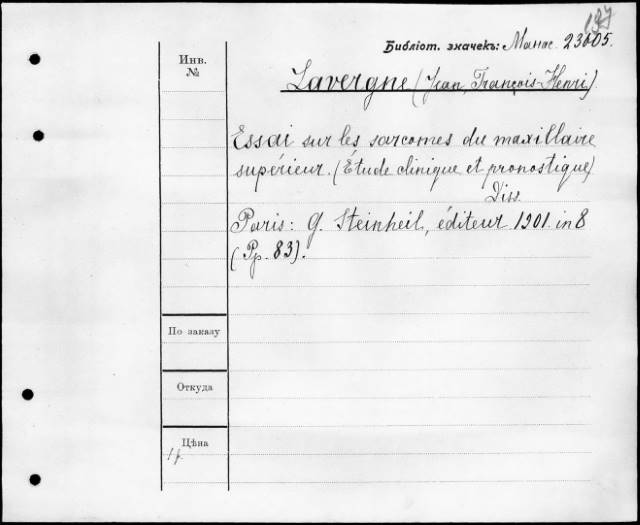 137
Библіот. значекъ: Манас. 23605.
Инв. №
Lavergne (Jean, François-Henri).
Essai sur les sarcomes du maxillaire
supérieur. (Étude clinique et pronostique)
Diss.
Paris: G. Steinheil, éditeur 1901. in 8
(Pp. 83).
По заказу
Откуда
Цѣна
1 f.